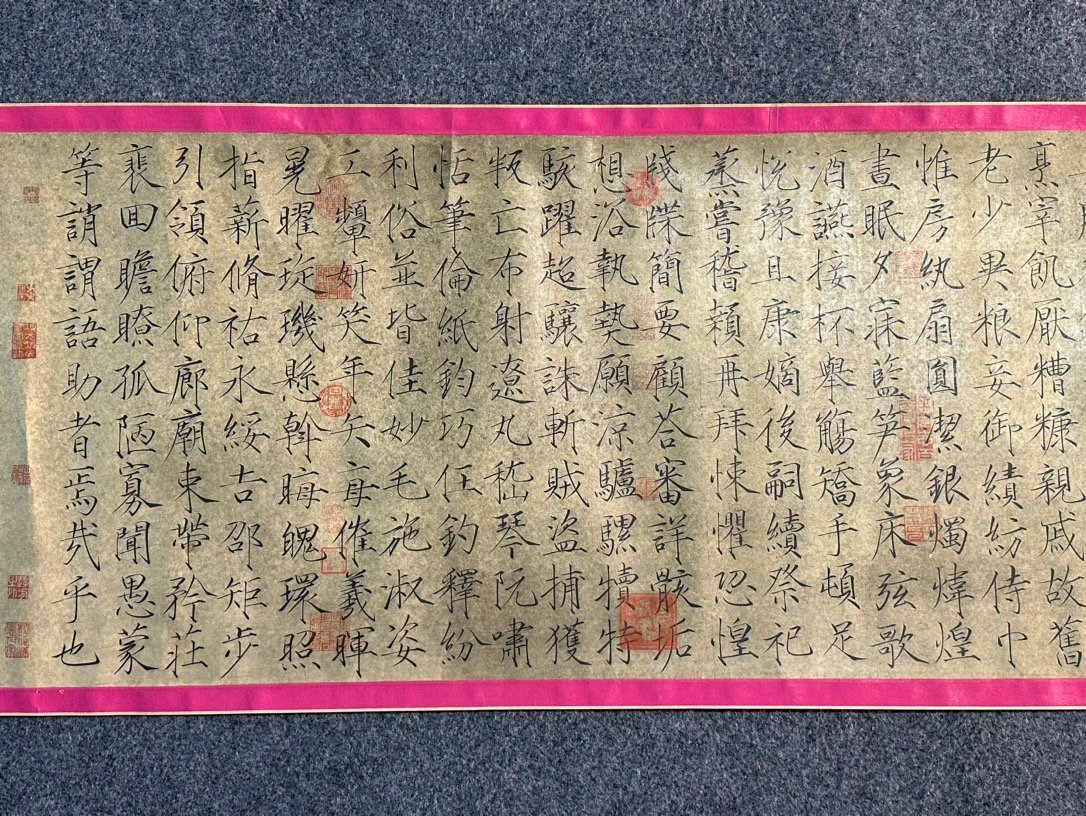 烹宰飢厭糟糠親戚故舊
老少異粮妾御績紡侍巾
惟房紈扇圓潔銀燭煒煌
晝眠夕寐藍笋象床弦歌
酒讌接杯舉觴矯手頓足
悅豫且康嫡後嗣續祭祀
蒸嘗稽顙再拜悚懼恐惶
牋牒簡要顧荅審詳骸垢
想浴執熱願涼驢騾犢特
駭躍超驤誅斬賊盜捕獲
叛亡布射遼丸嵇琴阮嘯
恬筆倫紙鈞巧任釣釋紛
利俗並皆佳妙毛施淑姿
工顰妍笑年矢每催羲暉
晃曜琁璣懸斡晦魄環照
指薪脩祜永綏吉邵矩步
引領俯仰廊廟束帶矜莊
裵回瞻瞭孤陋寡聞愚蒙
等誚謂語助者焉哉乎也